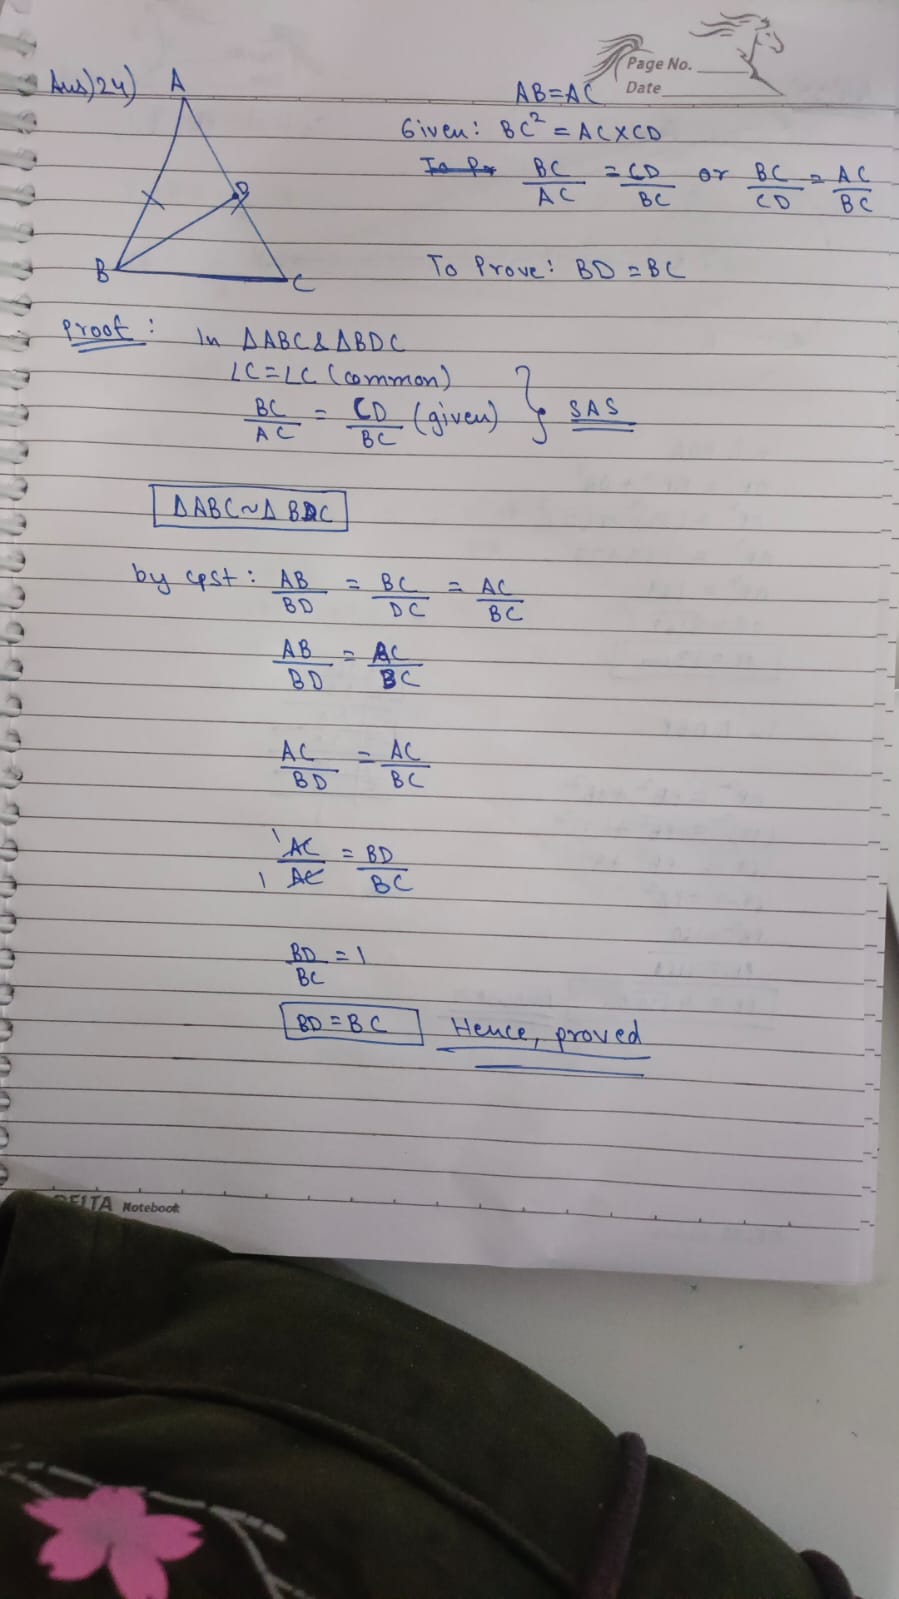 Page No.
Date
Ans)24)
A
D
B
C
AB=AC
Given: BC² = ACXCD
BC/AC = CD/BC or BC/CD = AC/BC
To Prove: BD = BC
Proof: In ΔABC & ΔBDC
∠C=∠C (common)
BC/AC = CD/BC (given) } SAS
ΔABC~ΔBDC
by cpst: AB/BD = BC/DC = AC/BC
AB/BD = AC/BC
AC/BD = AC/BC
1 AC/1 AC = BD/BC
BD/BC = 1
BD = BC Hence, proved
DELTA Notebook